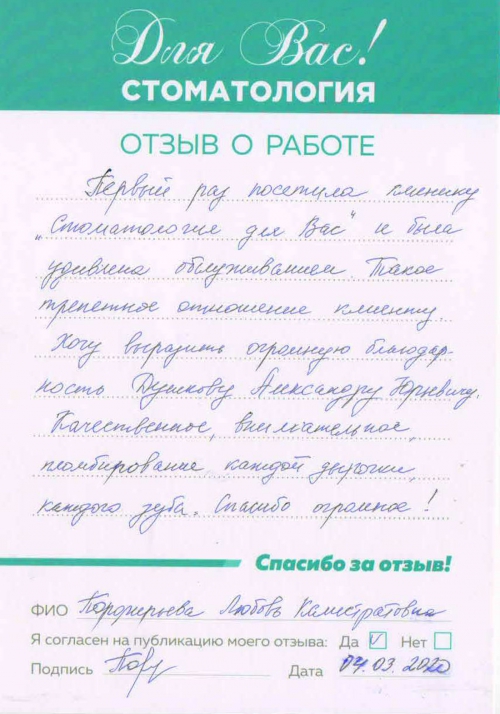 Для Вас!
СТОМАТОЛОГИЯ
ОТЗЫВ О РАБОТЕ
Первый раз посетила клинику
„Стоматология для Вас" и была
удивлена облуживанием. Такое
трепетное отношение клиенту.
Хочу выразить огромную благодар-
ность Душкову Александру Юрьевичу.
Качественное, внимательное,
пломбирование каждой дырочки,
каждого зуба. Спасибо огромное!
Спасибо за отзыв!
ФИО Порфирьева Любовь Калистратовна
Я согласен на публикацию моего отзыва: Да ✓ Нет
Подпись Дата 04.03.2020